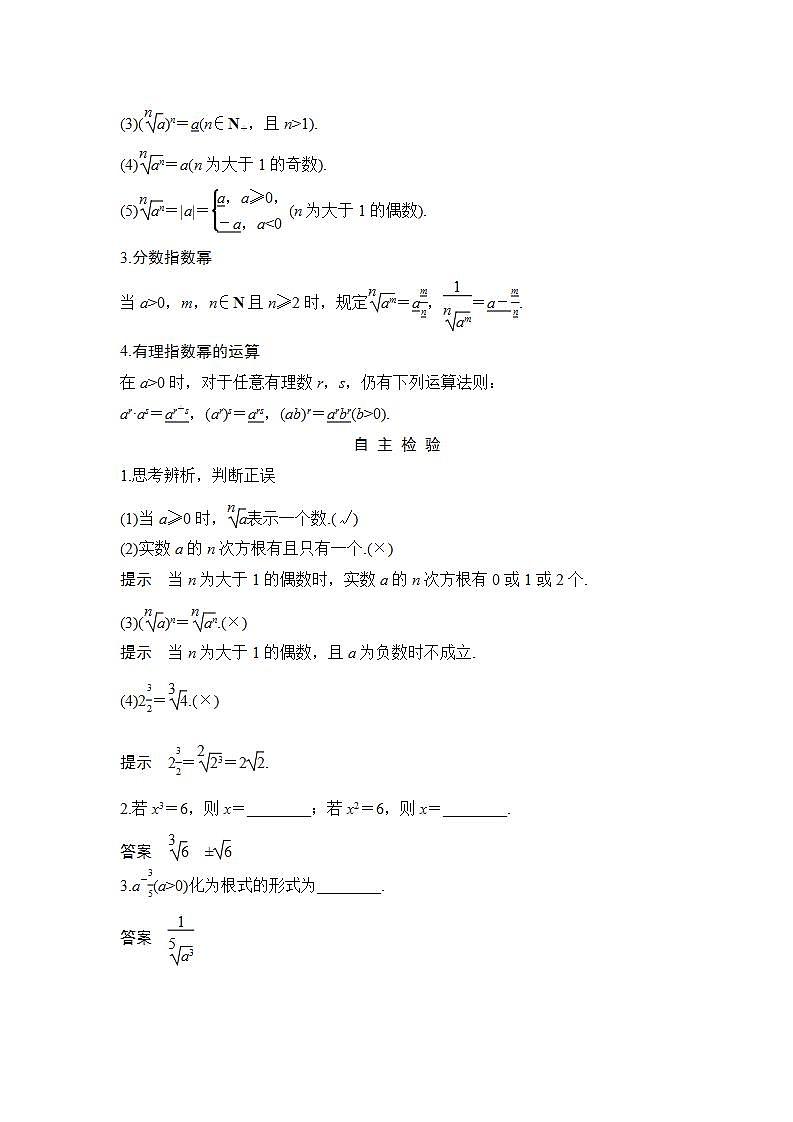 (3)(ⁿ√a)ⁿ=a(n∈N₊,且 n>1).
(4)ⁿ√aⁿ=a(n 为大于 1 的奇数).
(5)ⁿ√aⁿ=|a|={a,a≥0, -a,a<0 (n 为大于 1 的偶数).
3.分数指数幂
当 a>0,m,n∈N 且 n≥2 时,规定ⁿ√aᵐ=a^(m/n),1/ⁿ√aᵐ=a^(-m/n).
4.有理指数幂的运算
在 a>0 时,对于任意有理数 r,s,仍有下列运算法则:
aʳ·aˢ=aʳ⁺ˢ,(aʳ)ˢ=aʳˢ,(ab)ʳ=aʳbʳ(b>0).
自 主 检 验
1.思考辨析,判断正误
(1)当 a≥0 时,ⁿ√a表示一个数.(√)
(2)实数 a 的 n 次方根有且只有一个.(×)
提示 当 n 为大于 1 的偶数时,实数 a 的 n 次方根有 0 或 1 或 2 个.
(3)(ⁿ√a)ⁿ=ⁿ√aⁿ.(×)
提示 当 n 为大于 1 的偶数,且 a 为负数时不成立.
(4)2^(3/2)=³√4.(×)
提示 2^(3/2)=²√2³=2√2.
2.若 x³=6,则 x=________;若 x²=6,则 x=________.
答案 ³√6 ±√6
3.a^(-3/5)(a>0)化为根式的形式为________.
答案 1/⁵√a³